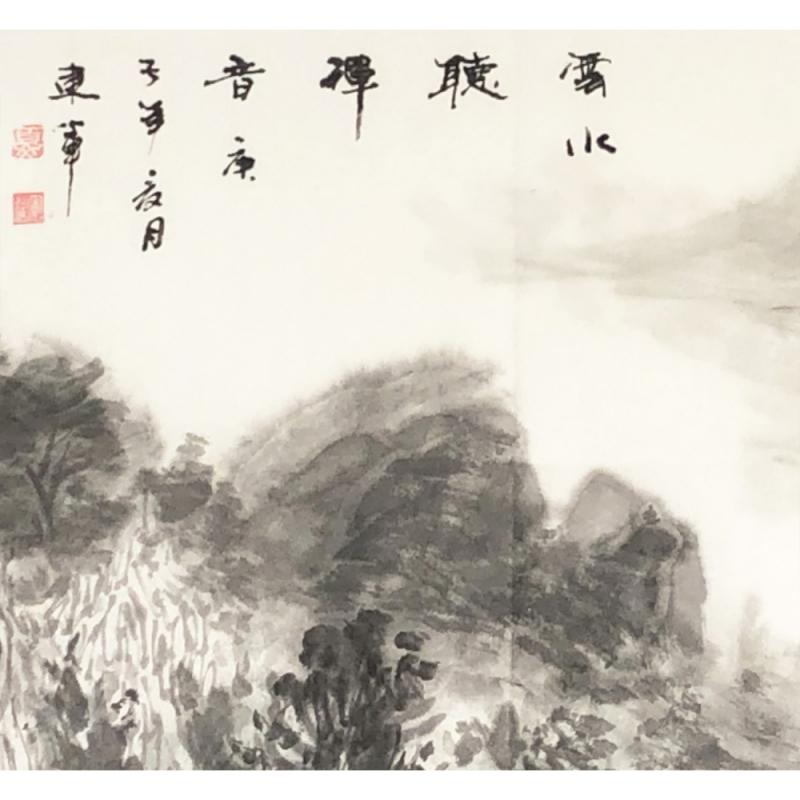 雲水
聽
禪
音庚
子年夏月
東華